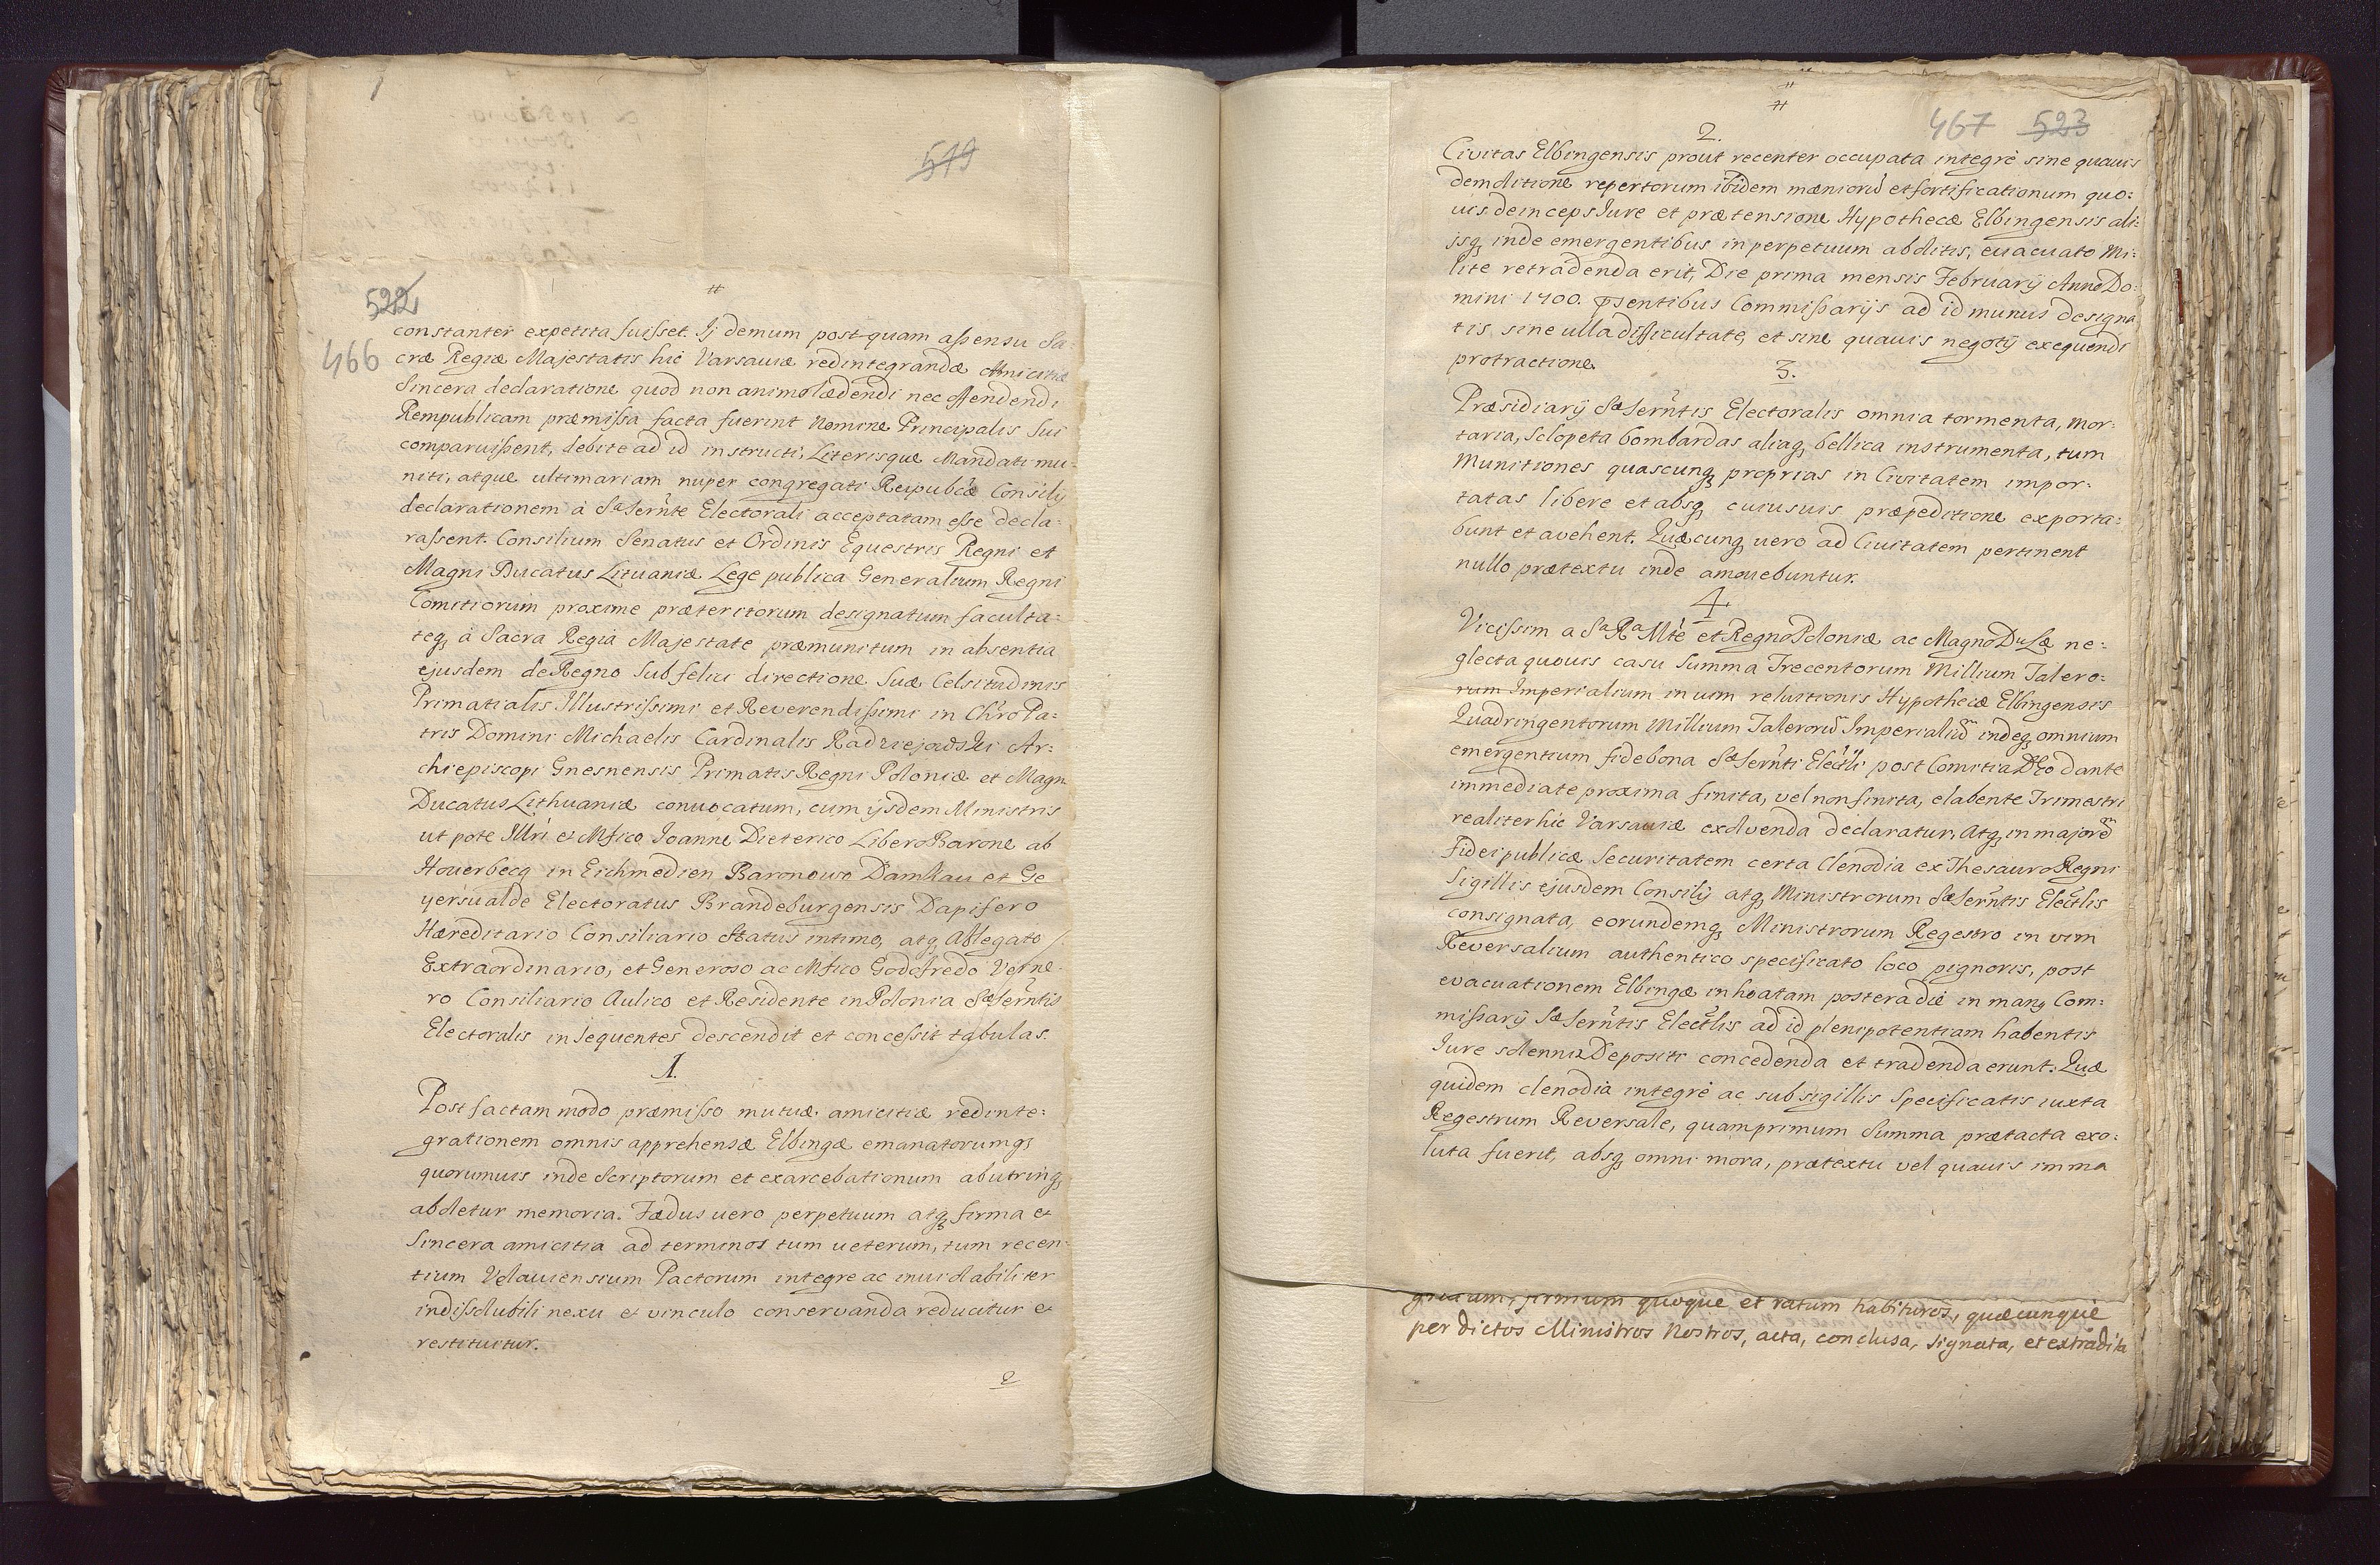 519
522
#
466
constanter expetita fuisset. Ij demum post quam assensu Sa-
cræ Regiæ Majestatis hic Varsaviæ redintegrandæ Amicitiæ
Sincera declaratione quod non animo lædendi nec offendendi
Rempublicam præmissa facta fuerint Nomine Principalis Sui
comparuissent, debite ad id instructi, Literisque Mandati mu:
niti, atque ultimariam nuper congregati Reipubcæ Consilij
declarationem à Sa Sernte Electorali acceptatam esse decla:
rassent. Consilium Senatus et Ordinis Equestris Regni et
Magni Ducatus Lituaniæ Lege publica Generalium Regni
Comitiorum proxime præteritorum designatum faculta:
teq à Sacra Regia Majestate præmunitum in absentia
ejusdem de Regno sub felici directione Suæ Celsitudinis
Primatialis Illustrissimi et Reverendissimi in Chro Pa:
tris Domini Michaelis Cardinalis Radziejowski Ar:
chiepiscopi Gnesnensis Primatis Regni Poloniæ et Magni
Ducatus Lithuaniæ convocatum, cum ijsdem Ministris
ut pote Illri et Mfico Joanne Dieterico Libero Barone ab
Houerbecq in Eichmedien Baronowo Damkau et Ge
yersualde Electoratus Brandeburgensis Dapifero
Hæreditario Consiliario Status intimo, atq Ablegato
Extraordinario, et Generoso ac Mfico Godofredo Verne-
ro Consiliario Aulico et Residente in Polonia Sæ Serntis
Electoralis in Sequentes descendit et concessit tabulas.
1.
Post factam modo præmisso mutuæ amicitiæ redinte:
grationem omnis apprehensæ Elbingæ emanatorumq
quorumuis inde Scriptorum et exarcebationum ab utrinq
aboletur memoria. Fædus uero perpetuum atq firma et
Sincera amicitia ad terminos tum ueterum, tum recen-
tium Velauiensium Pactorum integre ac inuiolabiliter
indissolubili nexu et vinculo conservanda reducitur et
restituitur.
2
#
#
467 523
2.
Civitas Elbingensis prout recenter occupata integrè sine quauis
demolitione repertorum ibidem mæniorũ et fortificationum quo:
uis deinceps Iure et prætensione Hypothecæ Elbingensis ali:
jsq inde emergentibus in perpetuum abolitis, euacuato Mi:
lite retradenda erit, Die prima mensis Februarij Anno Do:
mini 1700. psentibus Commissarijs ad id munus designa
tis sine ulla difficultate, et sine quauis negotij exequendi
protractione.
3.
Præsidiarij Sæ Serntis Electoralis omnia tormenta, mor:
taria, Sclopeta bombardas aliaq bellica instrumenta, tum
Munitiones quascunq proprias in Civitatem impor:
tatas libere et absq cuiusuis præpeditione exporta:
bunt et avehent. Quæcunq uero ad Ciuitatem pertinent
nullo prætextu inde amouebuntur.
4.
Vicissim a Sa Ra Mte et Regno Poloniæ ac Magno Du Læ ne:
glecta quouis casu Summa Trecentorum Millium Talero:
rum Imperialium in uim reluitionis Hypothecæ Elbingensis
Quadringentorum Millium Talerorũ Imperialiũ indeq omnium
emergentium fide bona Sæ Sernti Electli post Comitia Deo dante
immediate proxima finita, vel non finita, elabente Trimestri
realiter hic Varsauiæ exolvenda declaratur, Atq in majorẽ
fidei publicæ Securitatem certa Clenodia ex Thesauro Regni
Sigillis ejusdem Consilij atq Ministrorum Sæ Serntis Electlis
consignata, eorundemq Ministrorum Regestro in vim
Reversalium authentico specificato loco pignoris, post
evacuationem Elbingæ inhoatam postera die in manq Com:
missarij Sæ Serntis Electlis ad id plenipotentiam habentis
Iure solennis Depositi concedenda et tradenda erunt. Quæ
quidem clenodia integrè ac sub sigillis Specificatis iuxta
Regestrum Reversale, quamprimum Summa prætacta exo:
luta fuerit, absq omni mora, prætextu vel quauis imma
firmum quoque et ratum habituros, quæcunque
per dictos Ministros Nostros, acta, conclusa, signata, et extradita